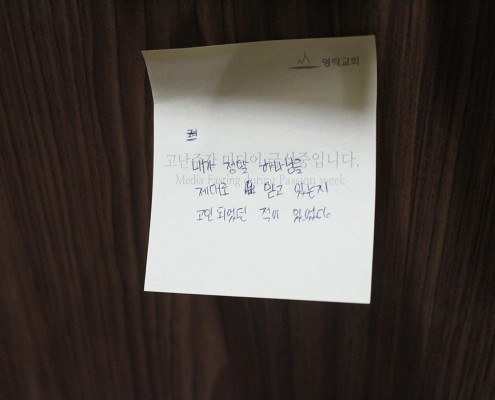 영락교회
고난주간 미디어 금식중입니다.
Media Fasting during Passion week
내가 정말 하나님을
제대로 믿고 있는지
고민 되었던 적이 있었다.